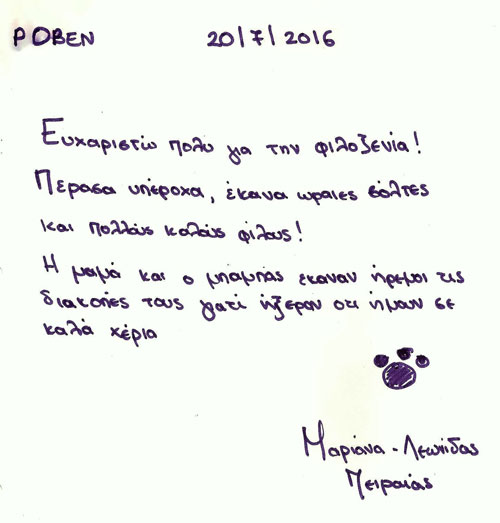 ΡΟΒΕΝ 20/7/2016
Ευχαριστώ πολυ για την φιλοξενία!
Πέρασα υπέροχα, έκανα ωραιες βόλτες
και πολλούς καλούς φίλους!
Η μαμά και ο μπαμπάς έκαναν ήρεμοι τις
διακοπές τους γιατί ήξεραν οτι ήμουν σε
καλά χέρια
Μαριάνα - Λεωνίδας
Πειραιάς